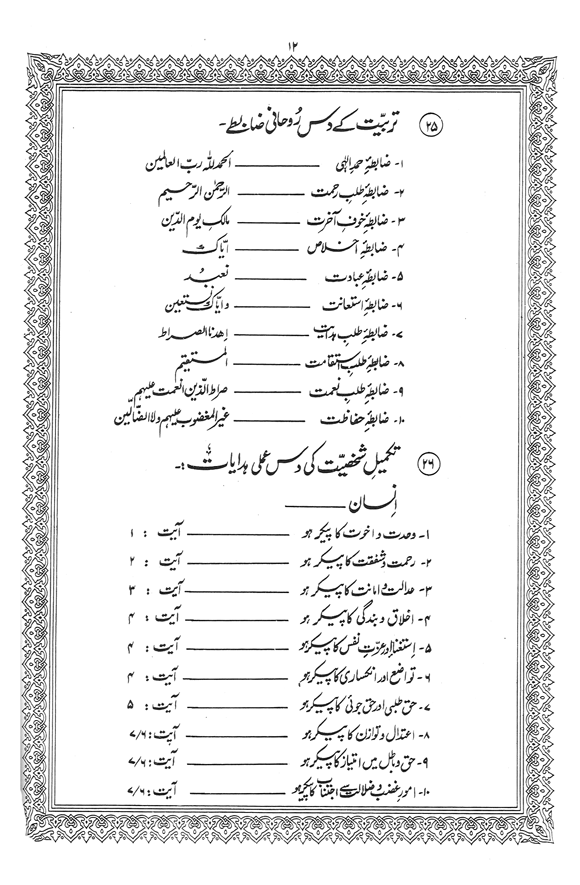 ۱۲
۲۵ تربیّت کے دس رُوحانی ضابطے -
۱- ضابطۂ حمدِ الٰہی ——— الحمدللہ ربّ العالمین
۲- ضابطۂ طلبِ رحمت ——— الرّحمٰن الرّحیم
۳- ضابطۂ خوفِ آخرت ——— مالک یوم الدّین
۴- ضابطۂ اخلاص ——— ایّاک
۵- ضابطۂ عبادت ——— نعبد
۶- ضابطۂ استعانت ——— وایّاک نستعین
۷- ضابطۂ طلبِ ہدایت ——— اِھدنا الصراط
۸- ضابطۂ طلبِ استقامت ——— المستقیم
۹- ضابطۂ طلبِ نعمت ——— صراط الّذین انعمت علیہم
۱۰- ضابطۂ حفاظت ——— غیر المغضوب علیہم ولا الضّالّین
۲۶ تکمیلِ شخصیّت کی دس عملی ہدایات :-
اِنسان ———
۱- وحدت و اخوت کا پیکر ہو ——— آیت : ۱
۲- رحمت و شفقت کا پیکر ہو ——— آیت : ۲
۳- عدالت و امانت کا پیکر ہو ——— آیت : ۳
۴- اخلاق و بندگی کا پیکر ہو ——— آیت : ۴
۵- اِستغنا اور عزتِ نفس کا پیکر ہو ——— آیت : ۴
۶- تواضع اور انکساری کا پیکر ہو ——— آیت : ۴
۷- حق طلبی اور حق جوئی کا پیکر ہو ——— آیت : ۵
۸- اعتدال و توازن کا پیکر ہو ——— آیت : ۷/۶
۹- حق و باطل میں امتیاز کا پیکر ہو ——— آیت : ۷/۶
۱۰- امورِ غضب و ضلالت سے اجتناب کا پیکر ہو ——— آیت : ۷/۶